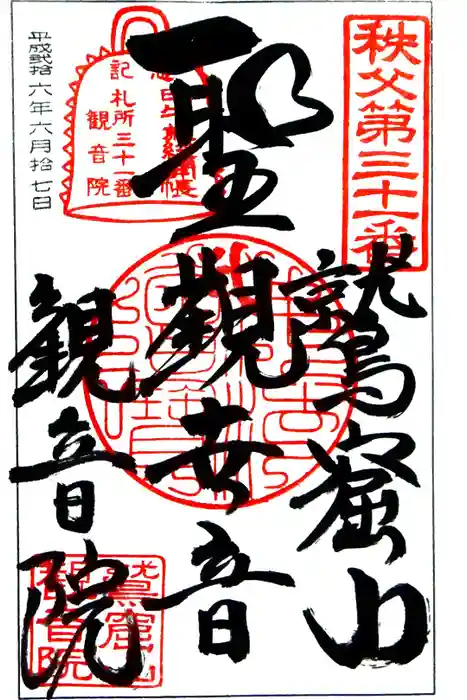 秩父第三十一番
鷲窟山
聖觀世音
観音院
平成弐拾六年六月拾七日
記
札所三十一番
観音院
鷲窟山
観音院